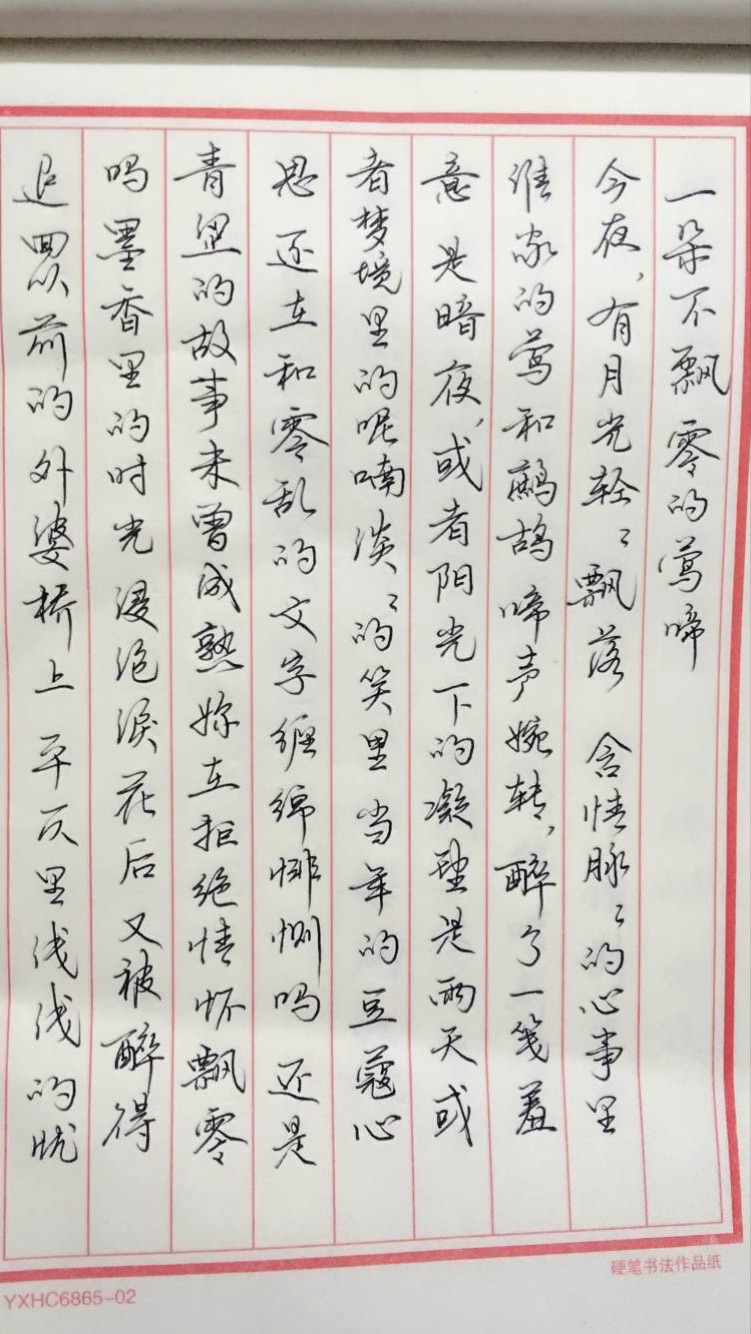 一朵不飘零的莺啼
今夜,有月光轻々飘落 含情脉々的心事里
谁家的莺和鹧鸪啼声婉转,醉了一笺羞
意 是暗夜,或者阳光下的凝望是雨天或
者梦境里的呢喃淡々的笑里当年的豆蔻心
思还在和零乱的文字缠绵悱恻吗 还是
青涩的故事未曾成熟妳在拒绝情怀飘零
吗墨香里的时光浸绝泪花后又被醉得
追 以前的外婆桥上平仄里浅浅的忧
硬笔书法作品纸
YXHC6865-02